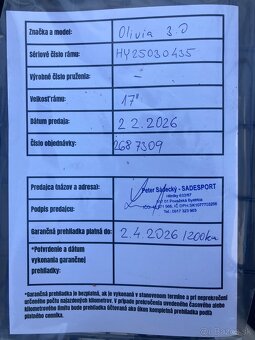 Značka a model: Olivia 3.0
Sériové číslo rámu: HY25030435
Výrobné číslo pruženia: -
Veľkosť rámu: 17"
Dátum predaja: 2.2.2026
Číslo objednávky: 2687309
Predajca (názov a adresa):
Peter Sádecký - SADESPORT
Považská Bystrica
Tel. 0917 323 985
Podpis predajcu:
Garančná prehliadka platná do: 2.4.2026/200km
*Potvrdenie a dátum
vykonania garančnej
prehliadky:
*Garančná prehliadka je bezplatná, ak je vykonaná v stanovenom termíne a pri neprekročení
určeného počtu najazdených kilometrov. V prípade prekročenia uvedeného časového alebo
kilometrového limitu bude prehliadka účtovaná ako úkon kompletná prehliadka podľa
platného cenníka.